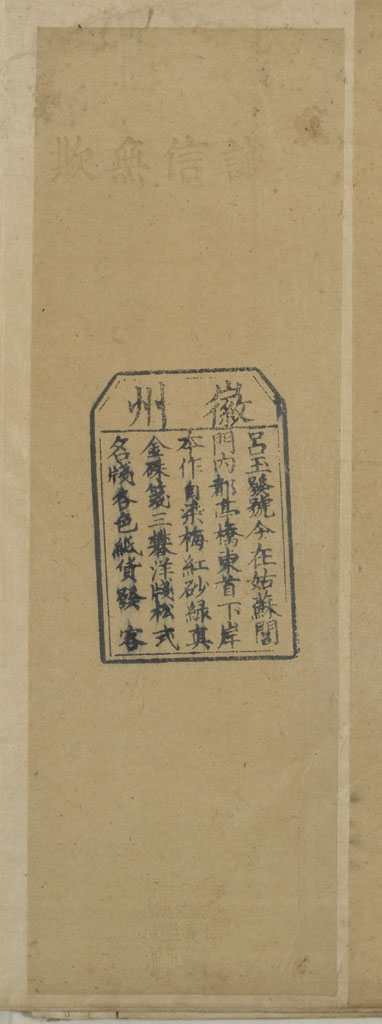 誠信無欺
徽州
呂玉號今在姑蘇閶
門內都亭橋東首下岸
本作自染梅紅砂綠真
金硃箋三礬洋牋松式
名牋各色紙貨發客